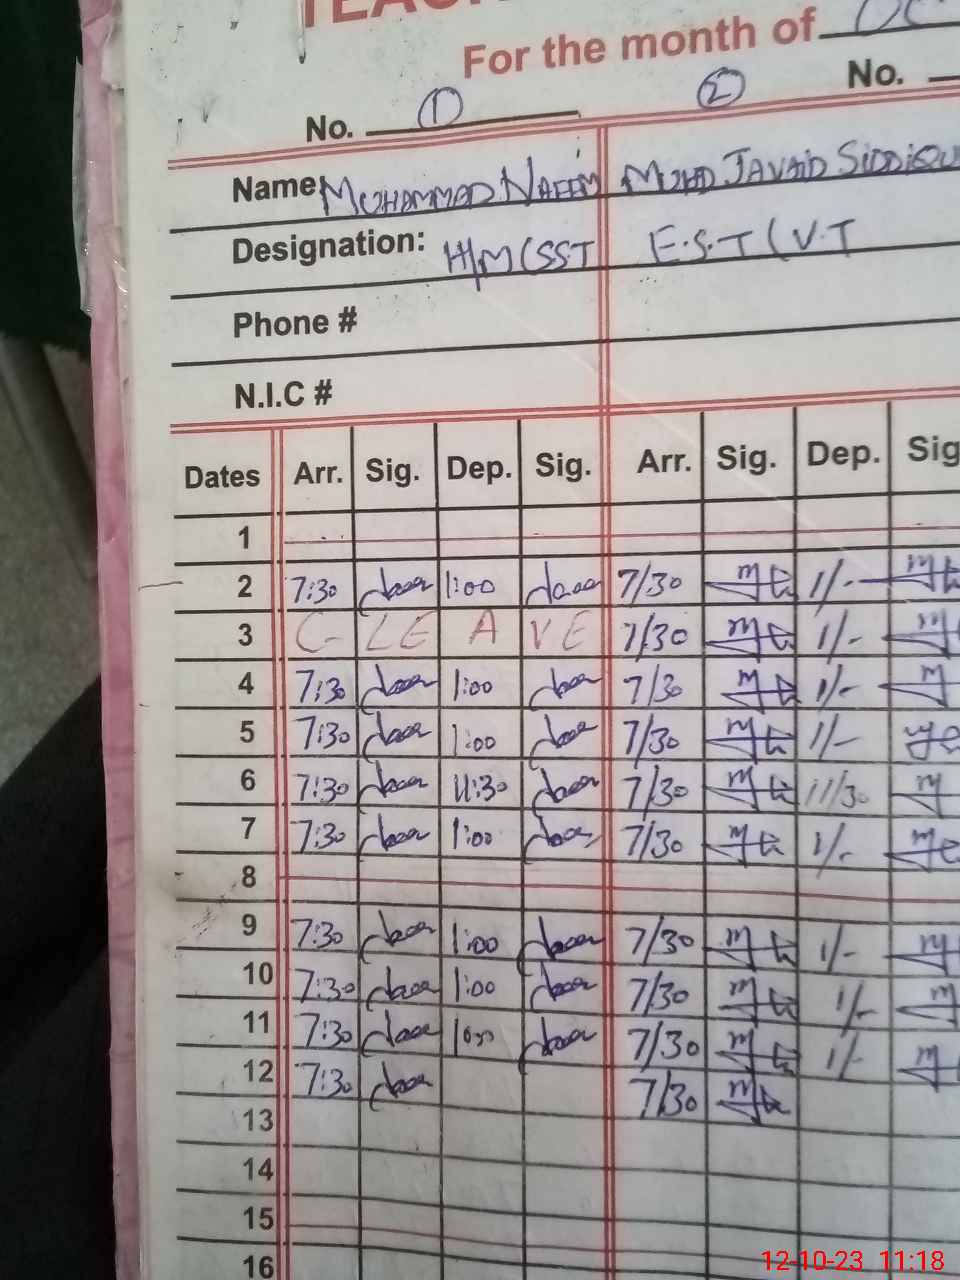 TEAC
For the month of OC
No. 1 2 No.
Name MUHAMMAD NAEEM MUHD JAVAID SIDDIQU
Designation: H/M(SST E.S.T(V.T
Phone #
N.I.C #
Dates Arr. Sig. Dep. Sig. Arr. Sig. Dep. Sig
1
2 7:30 1:00 7/30 1/-
3 C-LEAVE 7/30 1/-
4 7:30 1:00 7/30 1/-
5 7:30 1:00 7/30 1/-
6 7:30 11:30 7/30 11/30
7 7:30 1:00 7/30 1/-
8
9 7:30 1:00 7/30 1/-
10 7:30 1:00 7/30 1/-
11 7:30 1:00 7/30 1/-
12 7:30 7/30
13
14
15
16
12-10-23 11:18